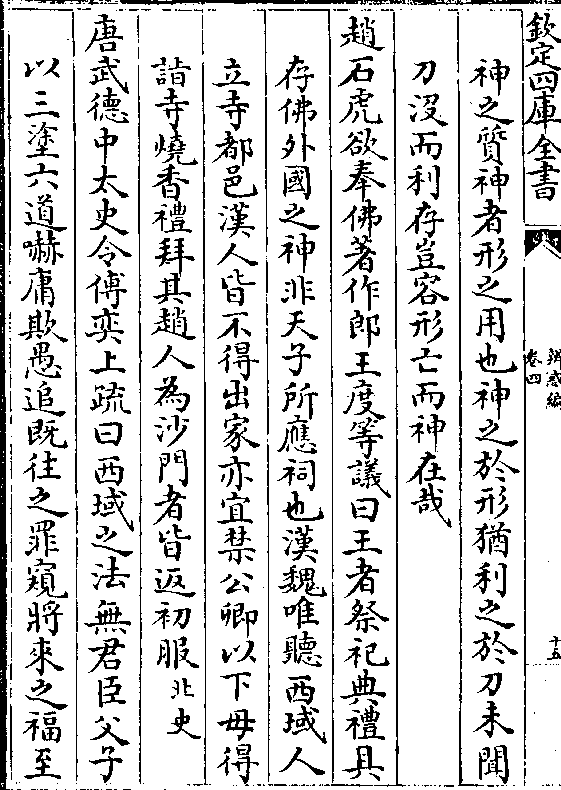 欽定四庫全書
辨惑編
卷四
十五
神之質神者形之用也神之於形猶利之於刀未聞
刀沒而利存豈容形亡而神在哉
趙石虎欲奉佛著作郎王度等議曰王者祭祀典禮具
存佛外國之神非天子所應祠也漢魏唯聽西域人
立寺都邑漢人皆不得出家亦宜禁公卿以下毋得
詣寺燒香禮拜其趙人為沙門者皆返初服北史
唐武德中太史令傅奕上疏曰西域之法無君臣父子
以三塗六道嚇庸欺愚追既往之罪窺將來之福至